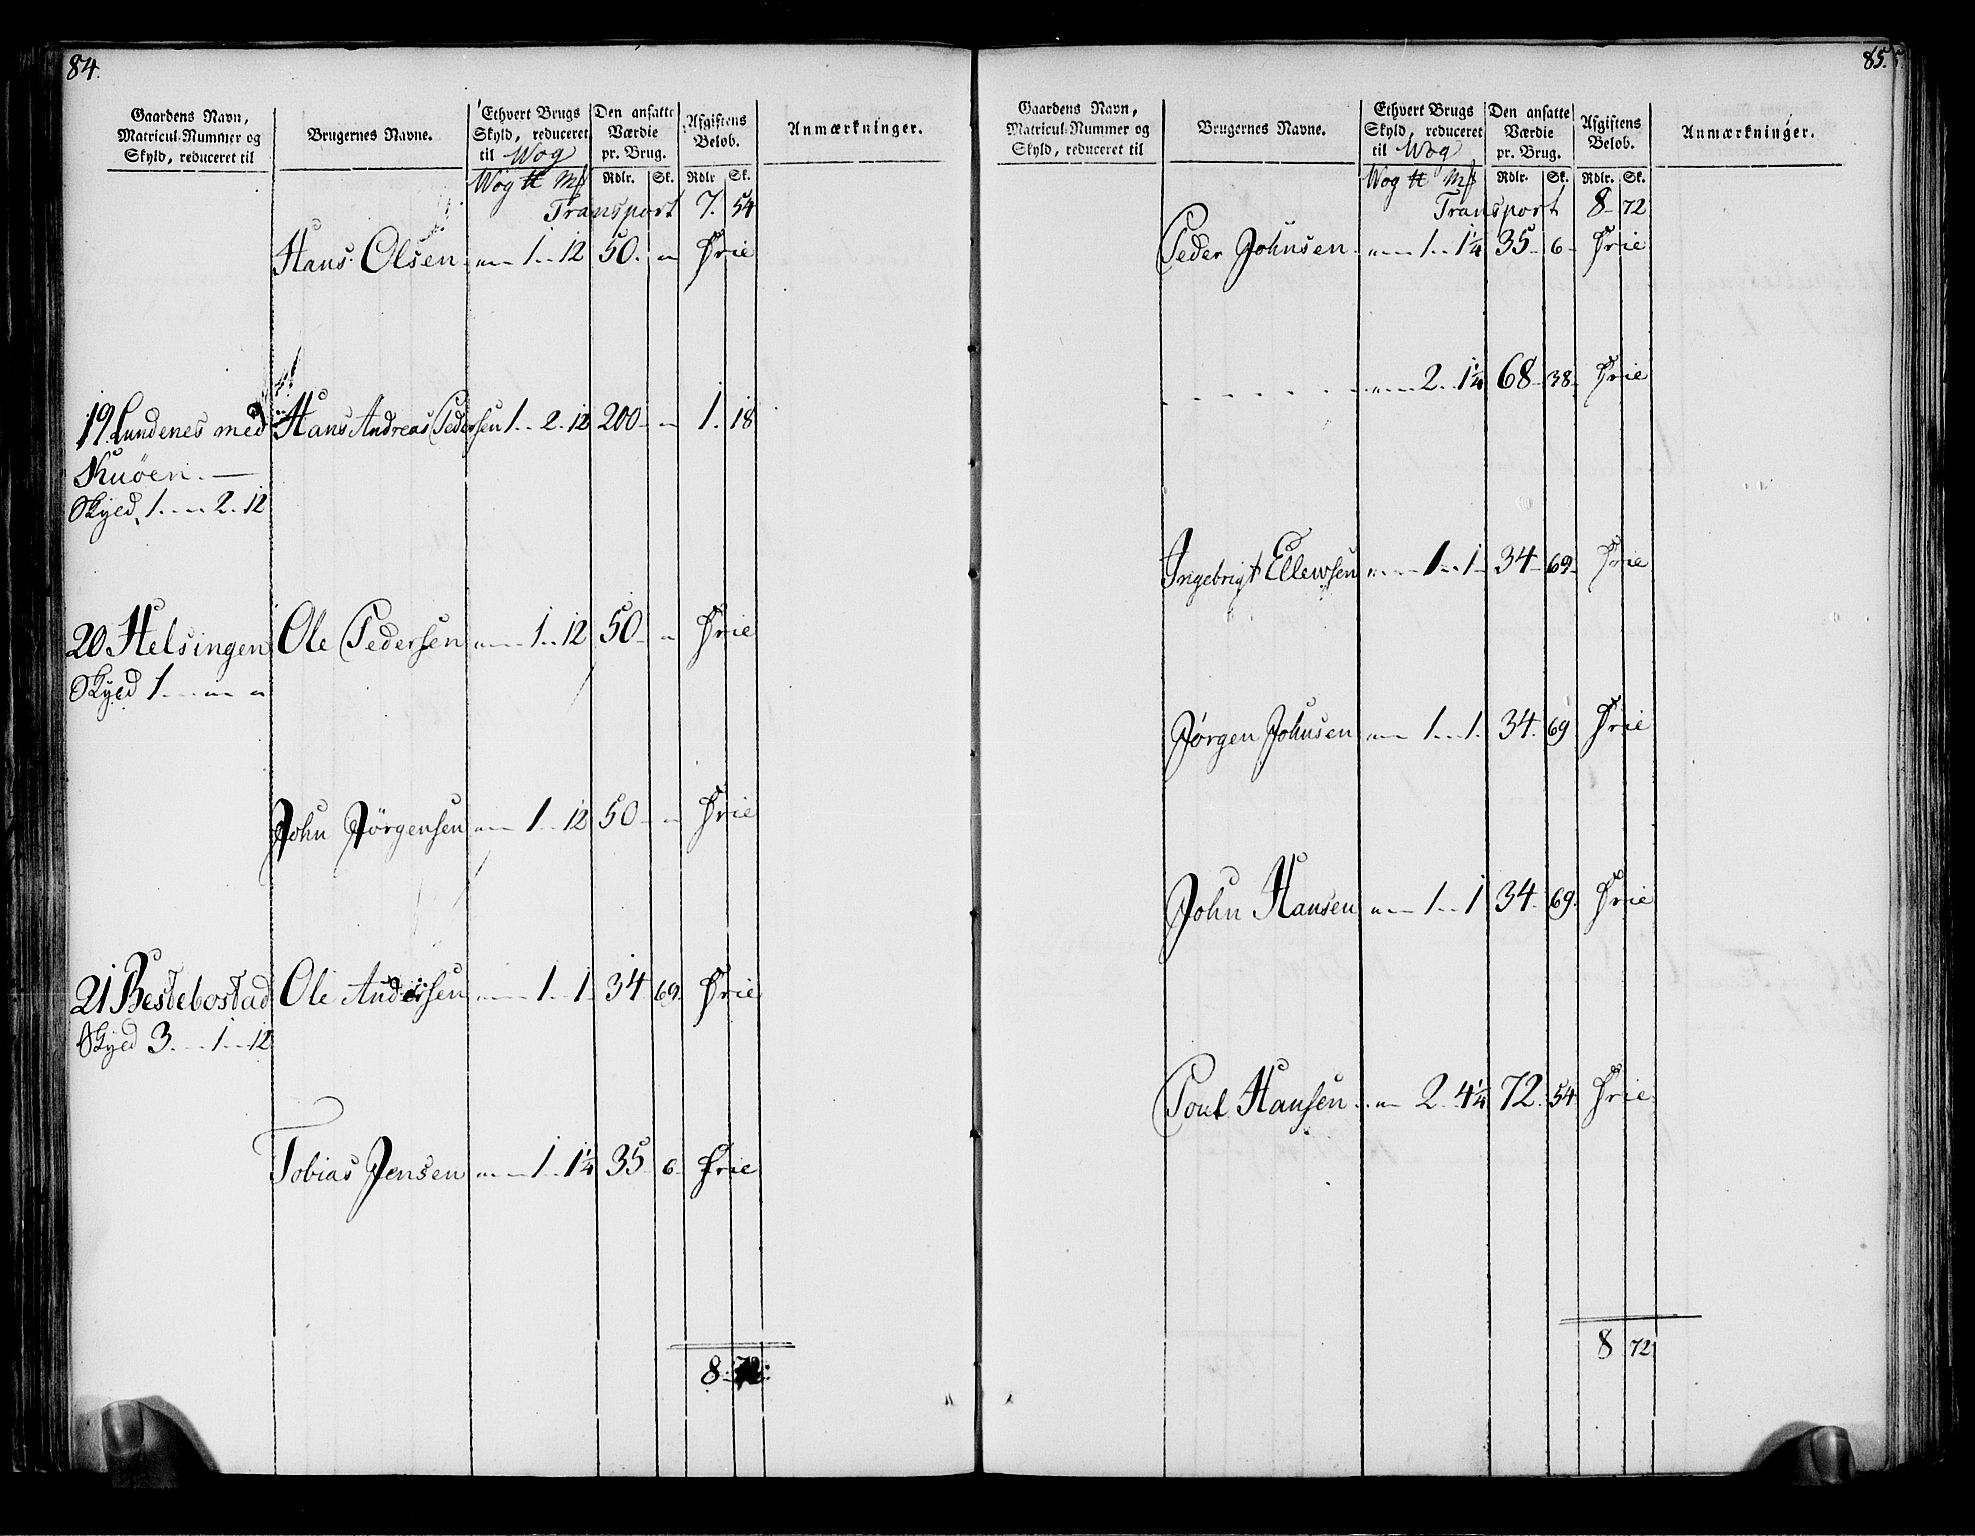 84.
Gaardens Navn, Matricul-Nummer og Skyld, reduceret til
Brugernes Navne.
Ethvert Brugs Skyld, reduceret til Wog
Den ansatte Værdie pr. Brug.
Afgiftens Beløb.
Anmærkninger.
Wog ℔ Mk Rdlr. Sk. Rdlr Sk.
Transport 7. 54
Hans Olsen „ — 1 .. 12 50. „ Frie
19. Lundenes med Hans Andreas Pedersen 1 .. 2 .. 12 200 — „ 1. 18
Kuöen. —
Skyld 1 . — „ 2 . 12
20 Helsingen Ole Pedersen „ — 1 .. 12 50 — „ Frie
Skyld 1 — „ — „
John Jörgensen „ — 1 .. 12 50 — „ Frie
21 Bestebostad Ole Andersen „ — 1 .. 1 34 69. Frie
Skyld 3 — 1 — 12
Tobias Jensen „ — 1 .. 1¼ 35 6 Frie
8 72
85.
Gaardens Navn, Matricul-Nummer og Skyld, reduceret til
Brugernes Navne.
Ethvert Brugs Skyld, reduceret til Wog
Den ansatte Værdie pr. Brug.
Afgiftens Beløb.
Anmærkninger.
Wog ℔ Mk Rdlr. Sk. Rdlr. Sk.
Transport 8 72
Peder Johnsen „ — 1 .. 1¼ 35 6 Frie
— — — — „ — 2 .. 1¼ 68 38 Frie
Ingebrigt Ellewsen „ — 1 .. 1 34 69 Frie
Jørgen Johnsen „ — 1 .. 1. 34. 69 Frie
John Hansen „ — 1 .. 1 34 69. Frie
Poul Hansen „ — 2 . 4¼ 72. 54 Frie.
8 72